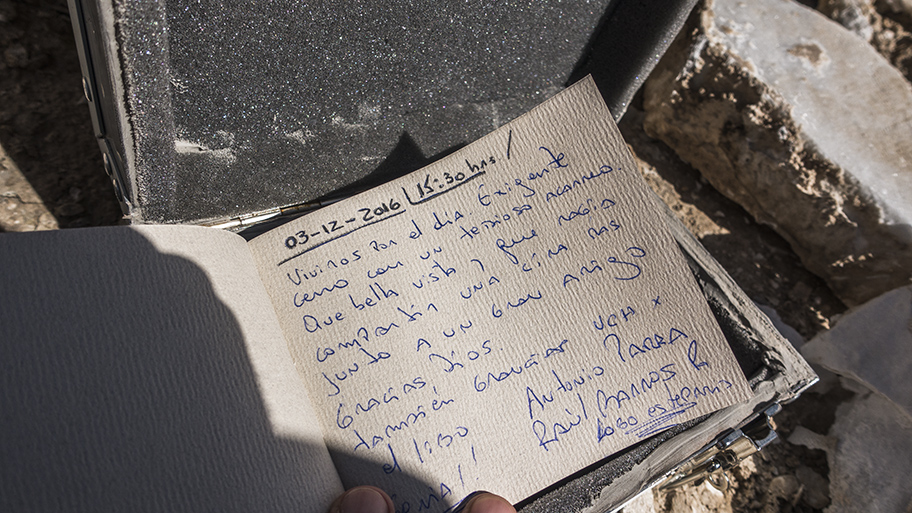 03-12-2016 / 15:30 hrs /
Vivimos por el día. Exigente
cerro con un tedioso acarreo.
Que bella vista y que magia
compartir una cima más
junto a un gran amigo
Gracias Dios.
también gracias UCH x
el libro
Antonio Parra
Raúl Barros R